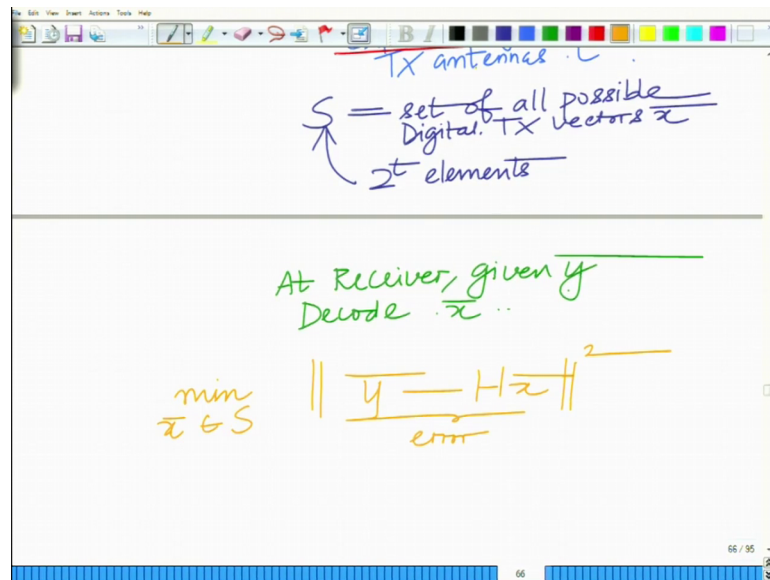 File Edit View Insert Actions Tools Help
B I
TX antennas
S = set of all possible
Digital TX vectors x̄
2^t elements
At Receiver, given ȳ
Decode x̄ ..
min x̄ ∈ S ‖ ȳ — Hx̄ ‖²
error
66 / 95
66